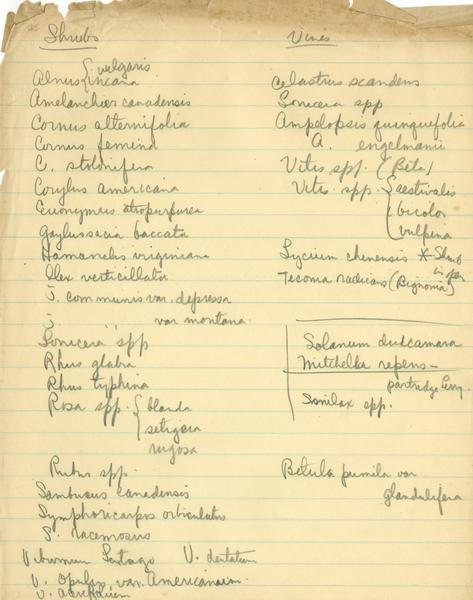 Shrubs
Alnus { vulgaris
incana
Amelanchier canadensis
Cornus alternifolia
Cornus femina
C. stolonifera
Corylus americana
Euonymus atropurpurea
Gaylussacia baccata
Hamamelis virginiana
Ilex verticillata
J. communis var. depressa
J. " var montana
Lonicera spp
Rhus glabra
Rhus typhina
Rosa spp. { blanda
setigera
rugosa
Rubus spp.
Sambucus canadensis
Symphoricarpos orbiculatus
S. racemosus
Viburnum Lentago V. dentatum
V. Opulus var. Americanum
V. acerifolium
Vines
Celastrus scandens
Lonicera spp
Ampelopsis quinquefolia
A. engelmanii
Vitis spp. (Beta)
Vitis spp. { aestivalis
bicolor
vulpina
Lycium chinensis * Shrub
Tecoma radicans (Bignonia)
Solanum dulcamara
Mitchella repens -
partridge berry
Smilax spp.
Betula pumila var
glandulifera